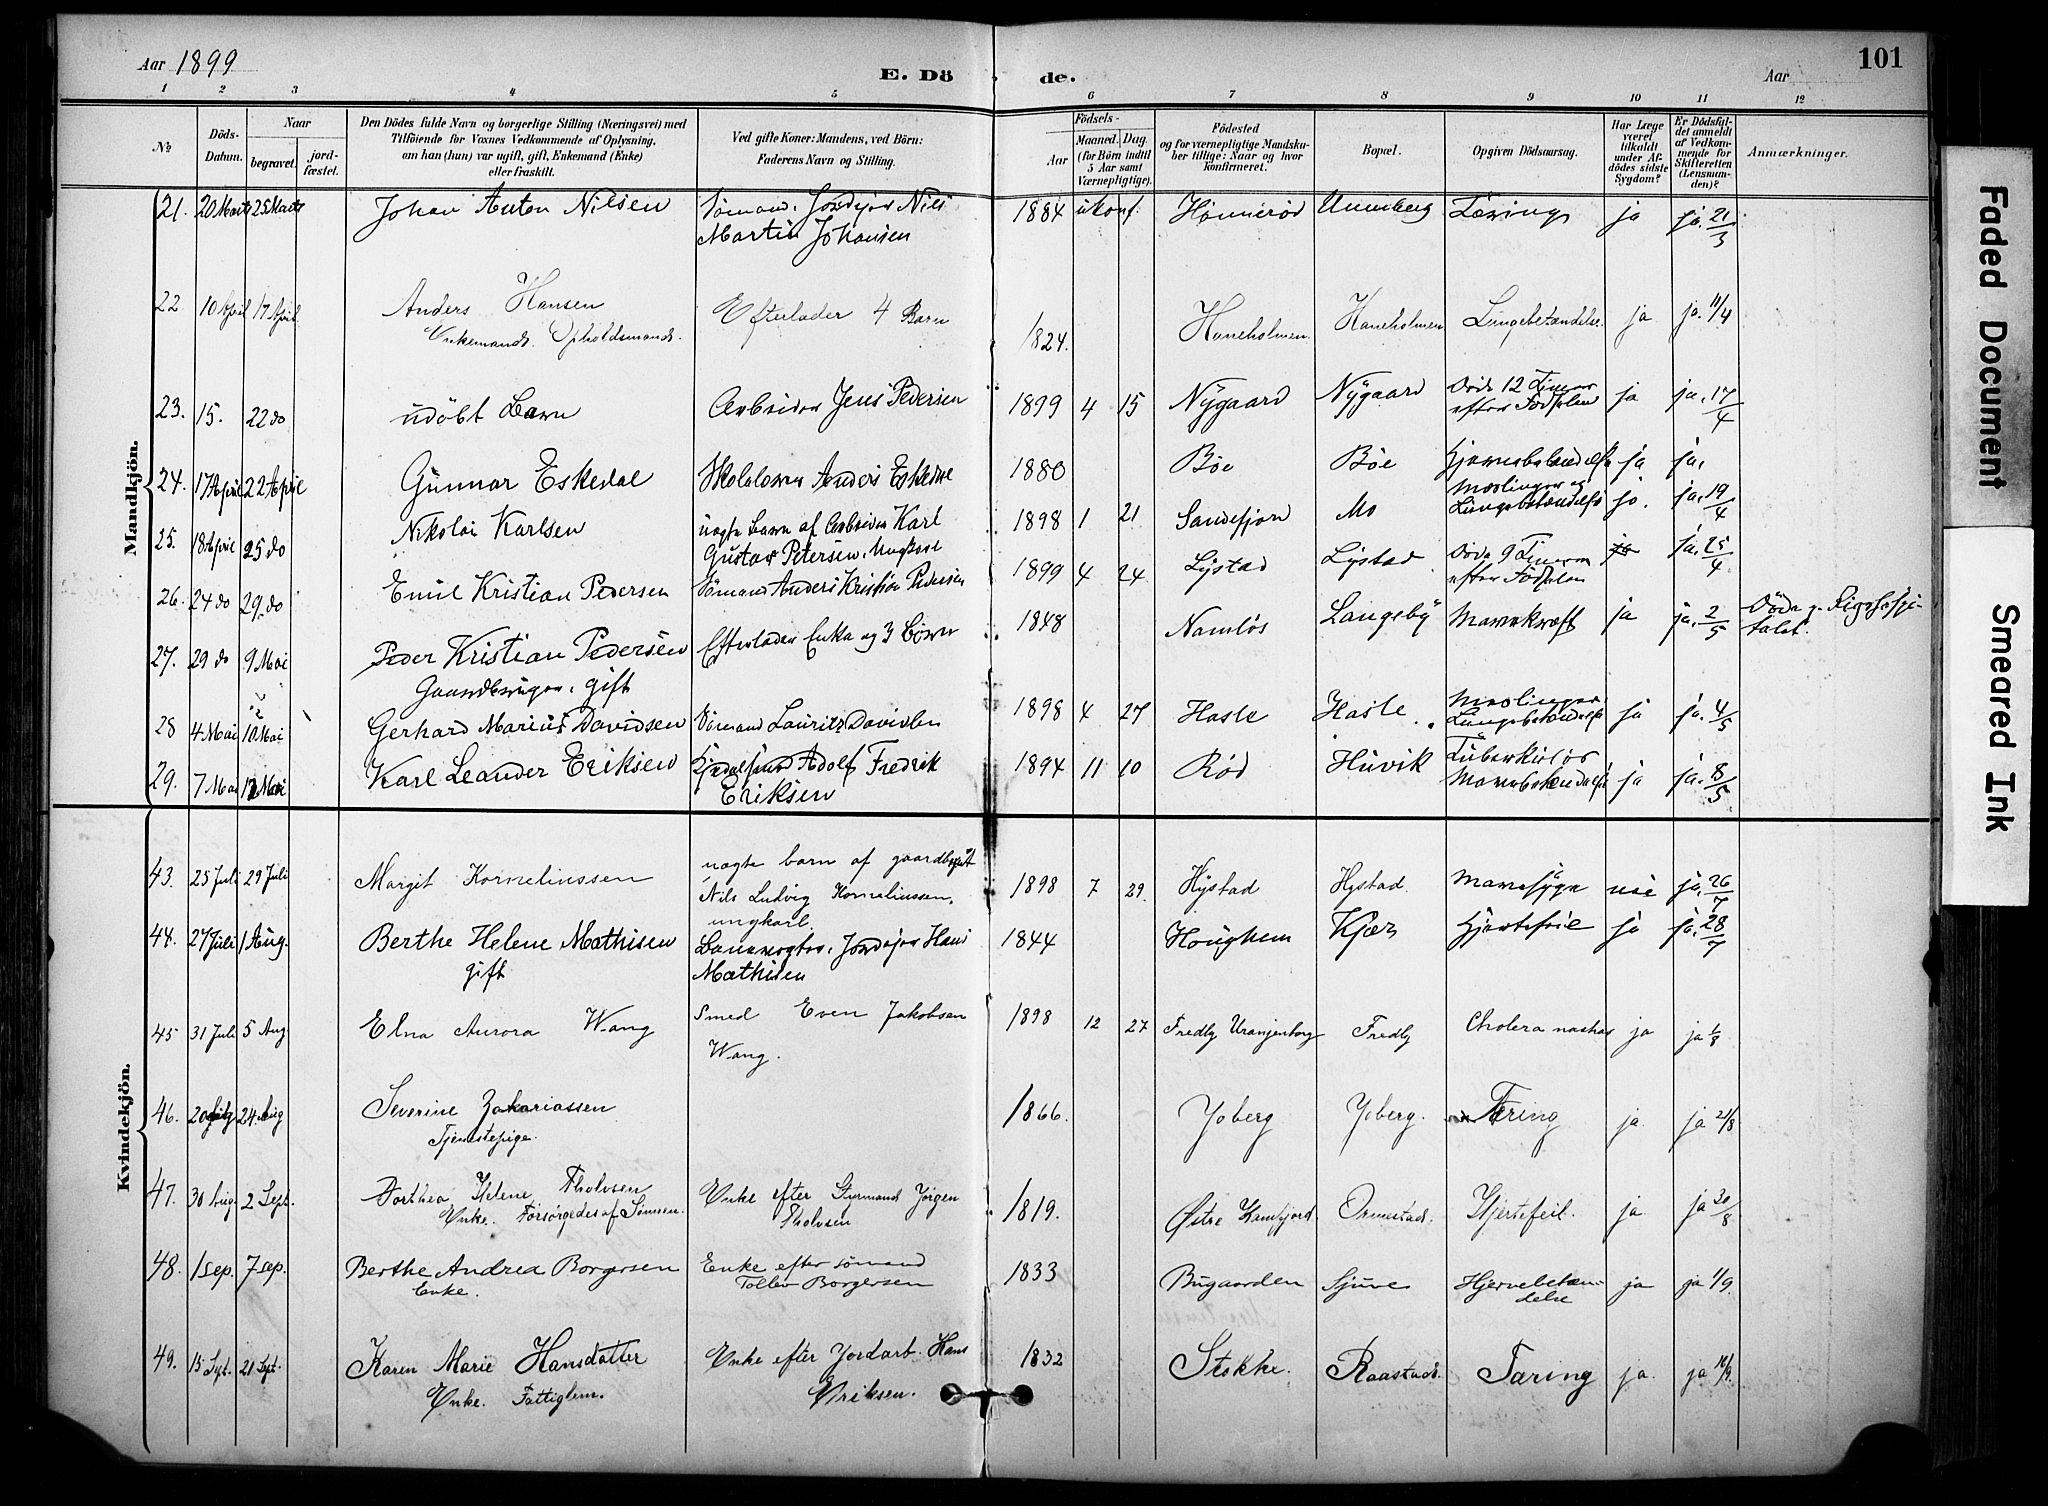 Aar 1899
E. Dö de.
Aar
101
1 2 3 4 5 6 7 8 9 10 11 12
№
Döds-Datum.
Naar
begravet.
jord-fæstet.
Den Dödes fulde Navn og borgerlige Stilling (Næringsvei) med
Tilföiende for Voxnes Vedkommende af Oplysning,
om han (hun) var ugift, gift, Enkemand (Enke)
eller fraskilt.
Ved gifte Koner: Mandens, ved Börn:
Faderens Navn og Stilling.
Födsels-
Aar
Maaned. Dag.
(for Börn indtil
5 Aar samt
Værnepligtige).
Födested
og for værnepligtige Mandska-
ber tillige: Naar og hvor
konfirmeret.
Bopæl.
Opgiven Dödsaarsag.
Har Læge
været
tilkaldt
under Af-
dödes sidste
Sygdom?
Er Dödsfal-
det anmeldt
af Vedkom-
mende for
Skifteretten
(Lensman-
den)?
Anmærkninger.
Mandkjön.
21. 20 Marts 25 Marts Johan Anton Nilsen Sømand, Jordejer Nils 1884 ukonf. Hønnerød Unneberg Tæring ja ja. 21/3
Martin Johansen
22 10 April 17 April Anders Hansen Efterlader 4 Barn 1824. Haneholmen Haneholmen Lungebetændelse. ja ja. 11/4
Enkemand. Opholdsmand.
23. 15. 22 do udøbt Barn Arbeider Jens Pedersen 1899 4 15 Nygaard Nygaard Døde 12 Timer ja ja. 17/4
efter Fødselen
24. 17 April 22 April Gunnar Eskedal Skolelærer Anders Eskedal 1880 Bøe Bøe Hjernebetændelse ja ja.
25. 18 April 25 do Nikolai Karlsen uægte Barn af Arbeider Karl 1898 1 21 Sandefjord Mo Mæslinger og ja. ja. 19/4
Gustav Petersen, Ungkarl Lungebetændelse
26. 24 do 29. do Emil Kristian Pedersen Sømand Anders Kristian Pedersen 1899 4 24 Lystad Lystad Døde 9 Timer ja. 25/4
efter Fødselen
27. 29 do 9 Mai Peder Kristian Pedersen Efterlader Enke og 3 Børn 1848 Namløs Langeby Mavekræft ja ja. 2/5 Døde p. Rigshospi-
talet.
Gaardbruger, gift
28 4 Mai 10 Mai Gerhard Marius Davidsen Sømand Lauritz Davidsen 1898 4 27 Hasle Hasle. Mæslinger ja ja. 4/5
Lungebetændelse
29. 7 Mai 12 Mai Karl Leander Eriksen Adolf Fredrik 1894 11 10 Rød Huvik Tuberkuløs ja ja. 8/5
Eriksen Mavebetændelse
Kvindekjön.
43. 25 Juli 29 Juli Margit Kornelinssen uægte barn af gaardbrugt 1898 7 29. Hystad Hystad. Mavesyge nei ja. 26/7
Nils Ludvig Kornelinssen,
ungkarl.
44. 27 Juli 1 Aug. Berthe Helene Mathisen Banevogter, Jordejer Hans 1844 Haughem Kjær Hjertefeil ja ja. 28/7
gift Mathisen
45 31 Juli 5 Aug Elna Aurora Wang Smed Even Jakobsen 1898 12 27 Fredly Uranjenborg Fredly Cholera nostras ja ja 1/8
Wang.
46. 20 Aug 24 Aug Severine Zakariassen 1866. Yoberg Yoberg. Tæring ja. ja 21/8
Tjenestepige.
47. 30 Aug. 2 Sept. Dorthea Helene Tholvsen Enke efter Styrmand Jørgen 1819. Østre Kamfjord. Ormestad. Hjertefeil. ja. ja 30/8
Enke. Forsørgedes af Sønnen. Tholvsen
48. 1 sep. 7 sep. Berthe Andrea Borgersen Enke efter sømand 1833 Bugaarden Sjuve Hjernebetæn- ja ja 1/9.
Enke. Tollev Borgersen delse
49. 15 Spt. 21 Spt. Karen Marie Hansdatter Enke efter Jordarb. Hans 1832 Stokke. Raastad. Tæring ja. ja 16/9.
Enke. Fattiglem. Eriksen.
Faded Document
Smeared Ink